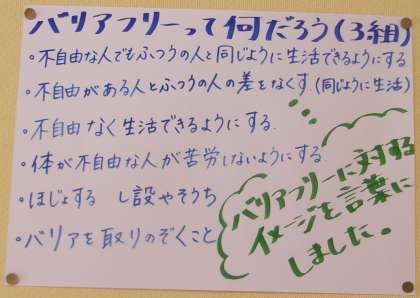 バリアフリーって何だろう(3組)
・不自由な人でもふつうの人と同じように生活できるようにする
・不自由がある人とふつうの人の差をなくす.(同じように生活)
・不自由なく生活できるようにする.
・体が不自由な人が苦労しないようにする.
・ほじょする し設やそうち
・バリアを取りのぞくこと
バリアフリーに対する
イメージを言葉に
しました。